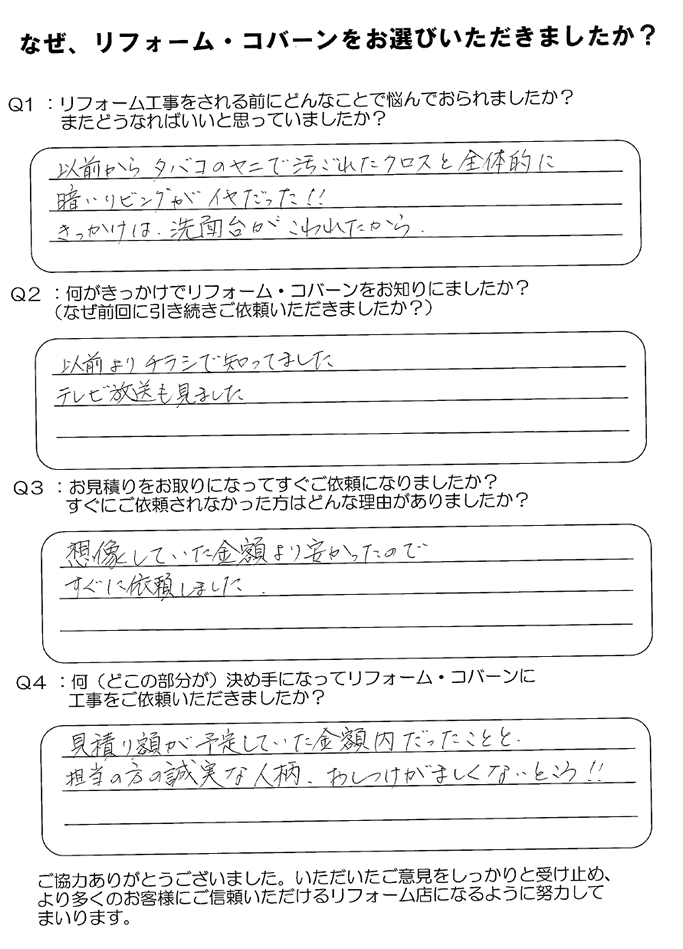 なぜ、リフォーム・コバーンをお選びいただきましたか？
Q1 ：リフォーム工事をされる前にどんなことで悩んでおられましたか？
またどうなればいいと思っていましたか？
以前から タバコのヤニで汚ごれたクロスと全体的に
暗いリビングがイヤだった!!
きっかけは、洗面台が こわれたから.
Q2 ：何がきっかけでリフォーム・コバーンをお知りにましたか？
（なぜ前回に引き続きご依頼いただきましたか？）
以前より チラシで知ってました
テレビ放送も見ました
Q3 ：お見積りをお取りになってすぐご依頼になりましたか？
すぐにご依頼されなかった方はどんな理由がありましたか？
想像していた金額より安かったので
すぐに依頼しました.
Q4 ：何（どこの部分が）決め手になってリフォーム・コバーンに
工事をご依頼いただきましたか？
見積り額が予定していた金額内だったことと、
担当の方の誠実な人柄、おしつけがましくないところ!!
ご協力ありがとうございました。いただいたご意見をしっかりと受け止め、
より多くのお客様にご信頼いただけるリフォーム店になるように努力して
まいります。